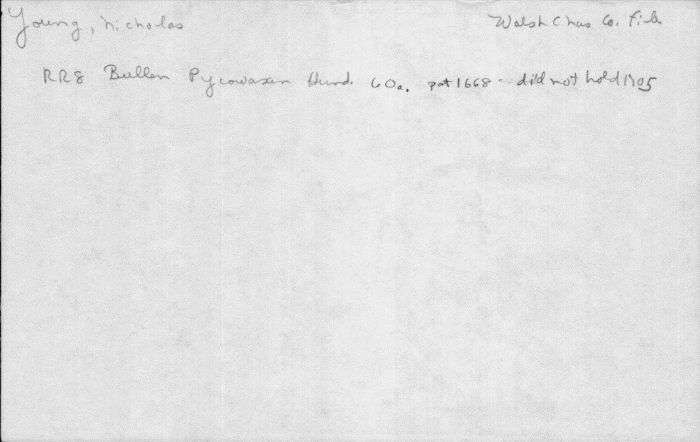 Young, Nicholas
Walsh Chas Co. File
RR8 Bullen Pycowaxen Hund. 60a. pat 1668 - did not hold 1705